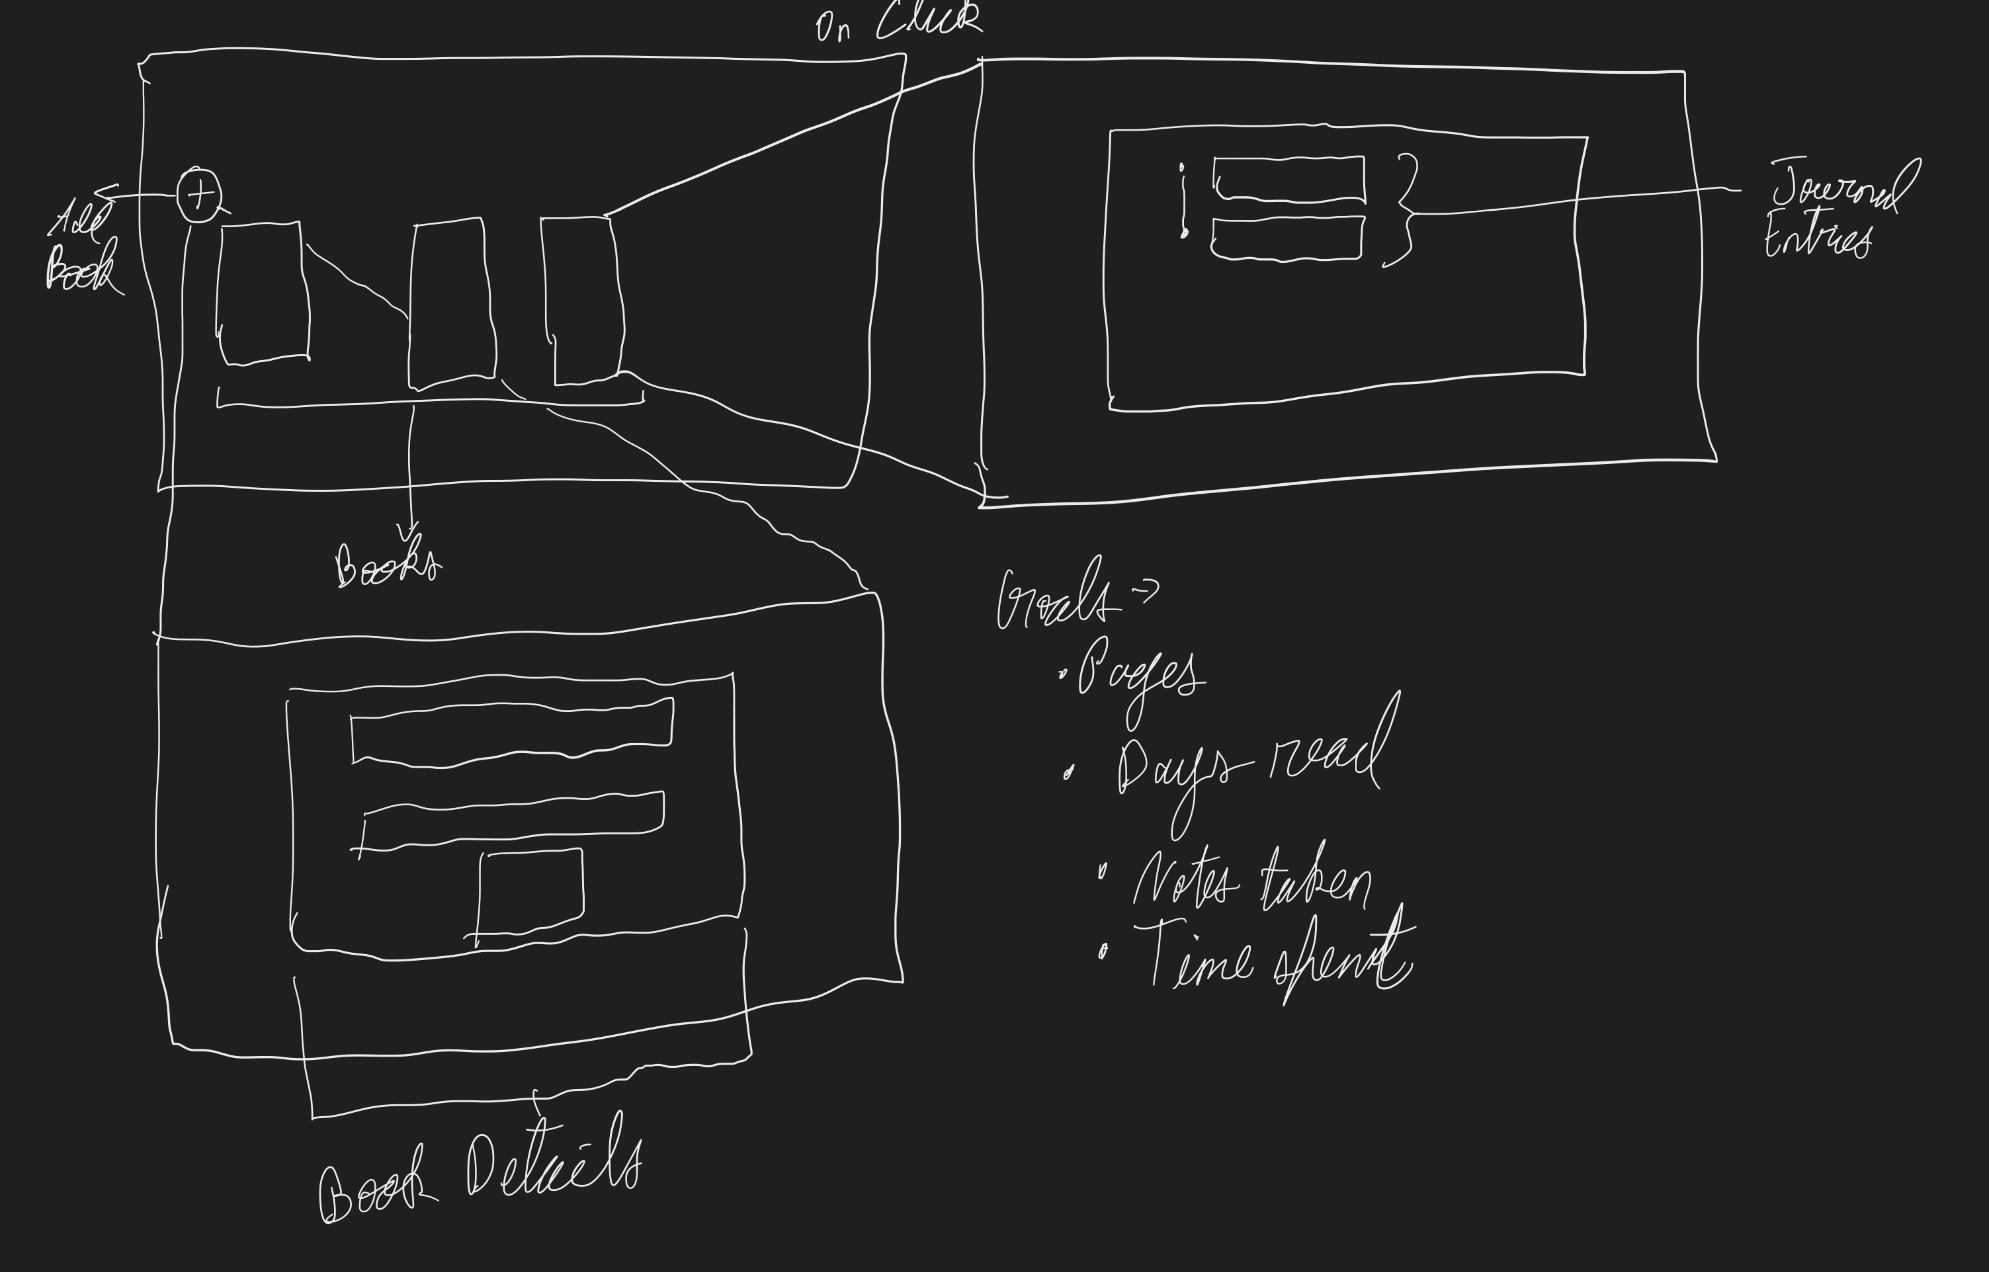 On Click
Add
Book
Journal
Entries
Books
Goals →
• Pages
• Days read
• Notes taken
• Time spent
Book Details